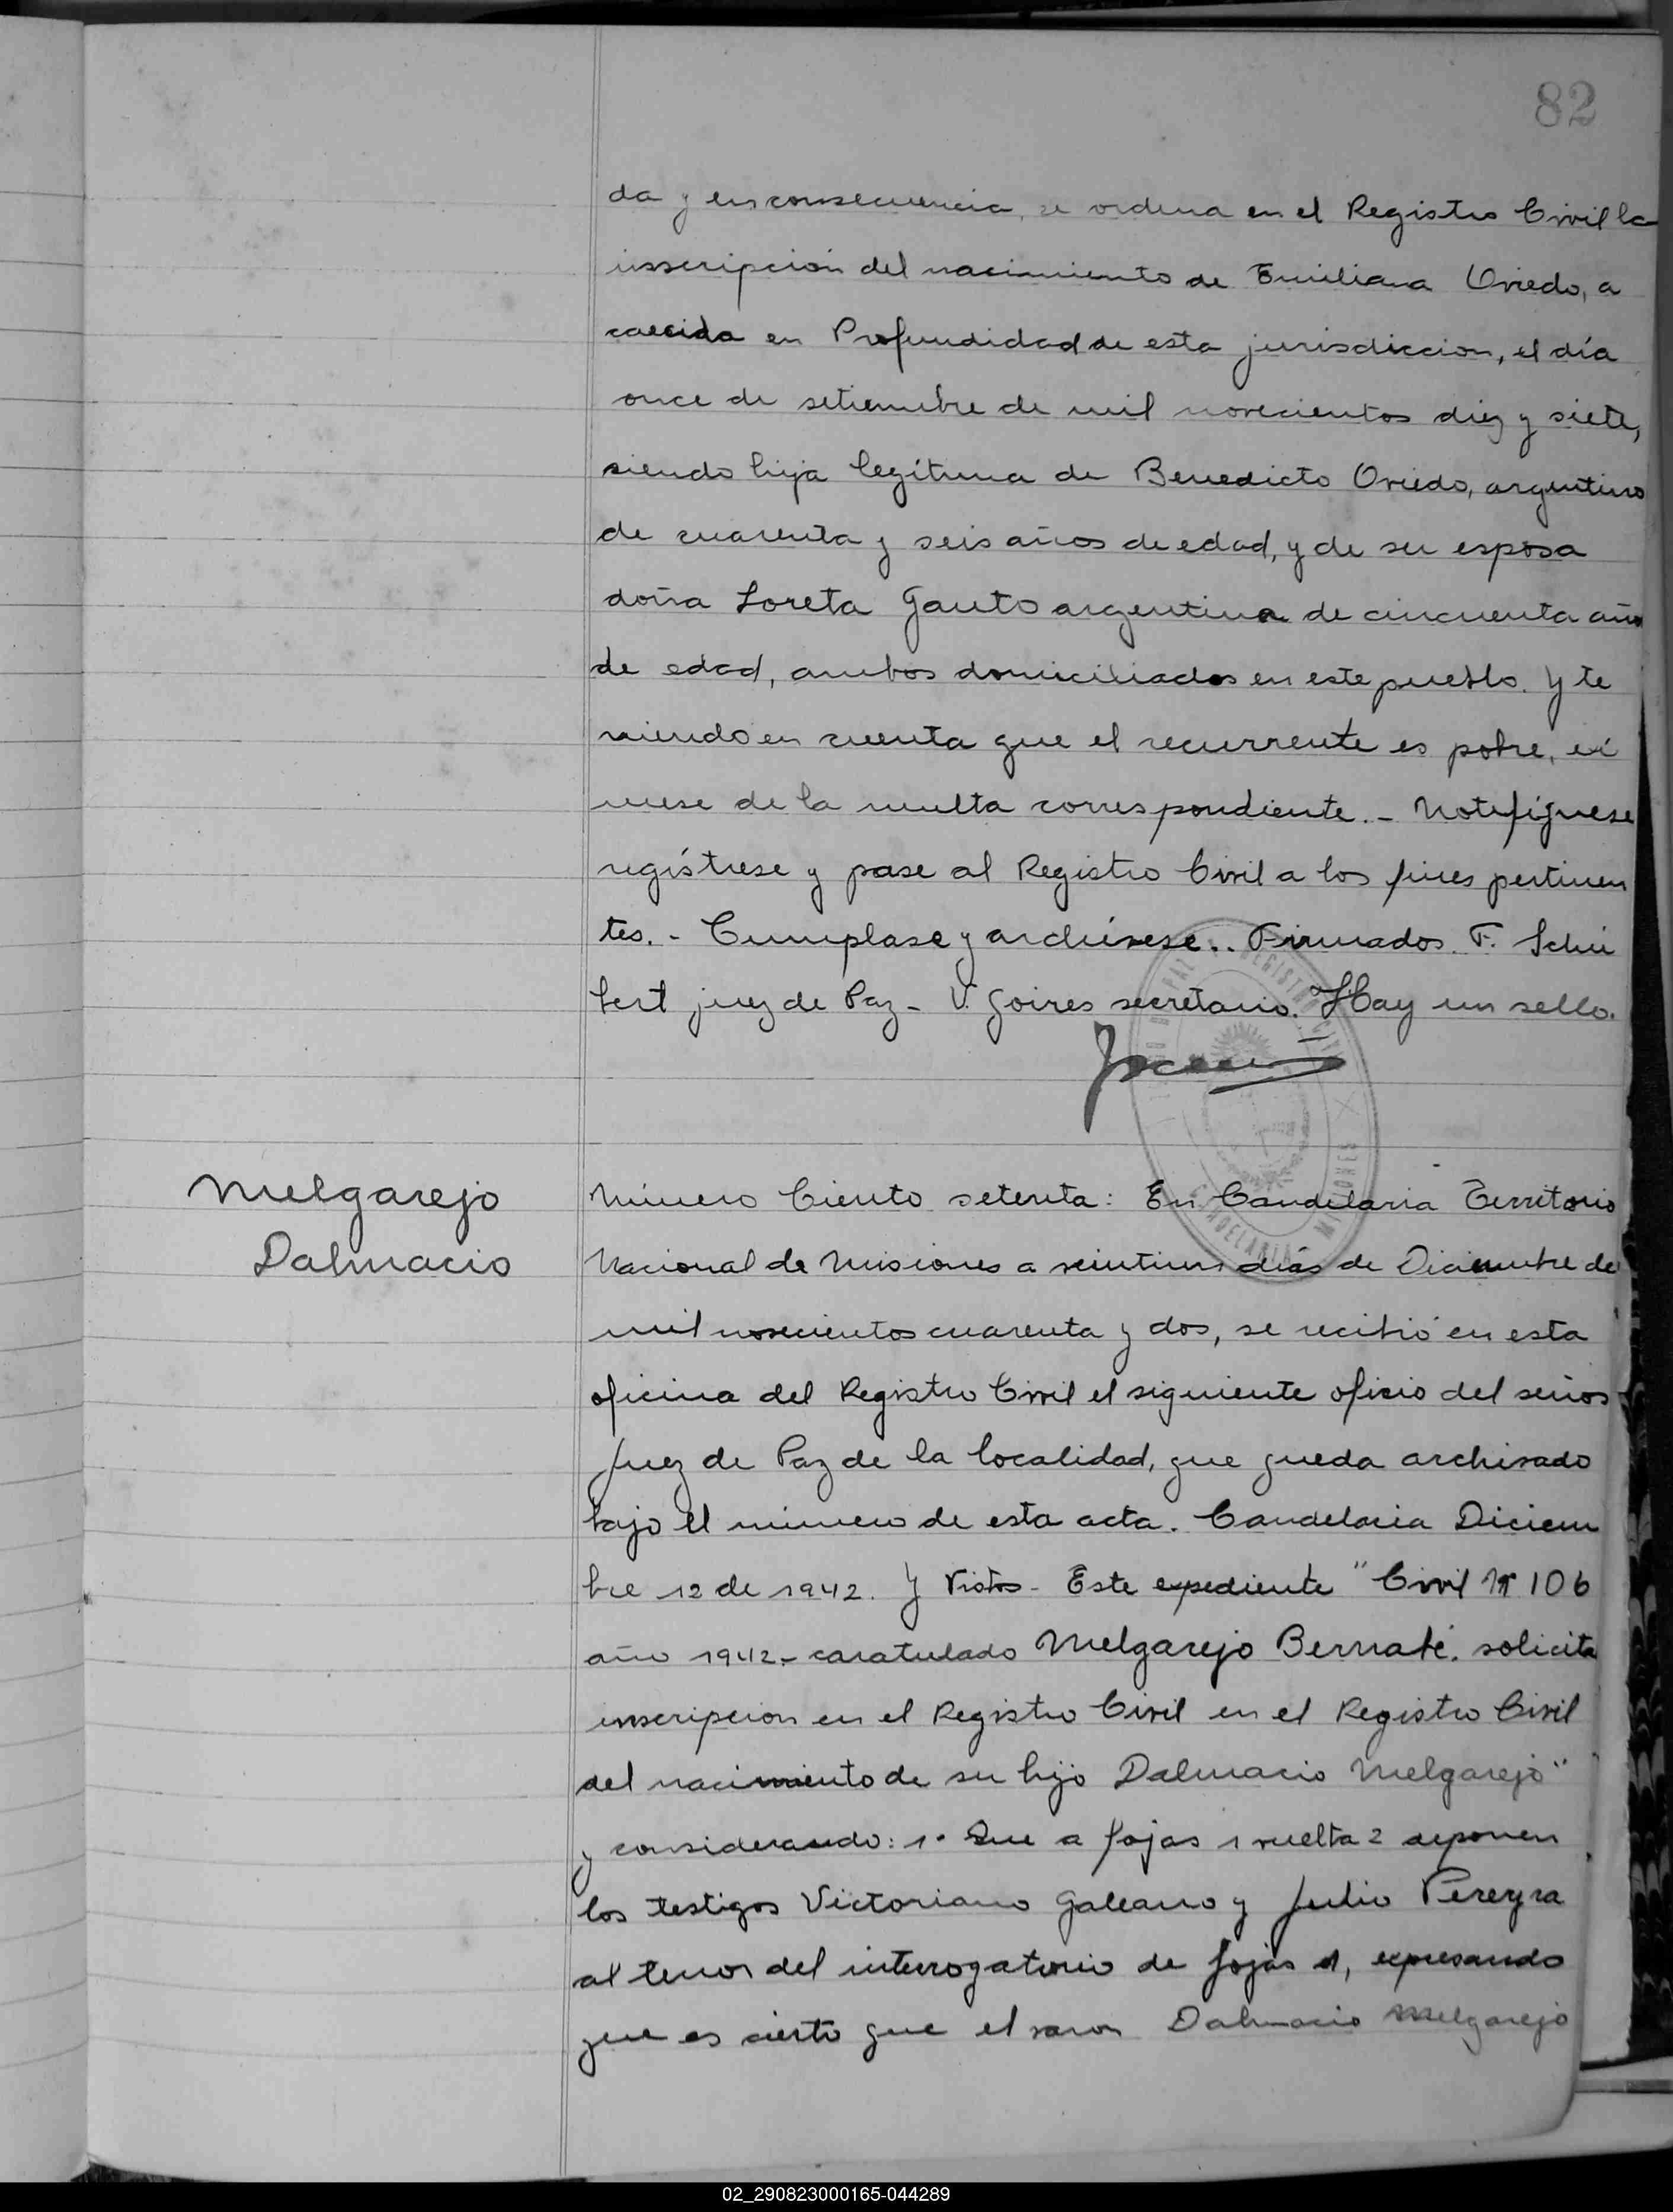 82
da y en consecuencia, se ordena en el Registro Civil la
inscripción del nacimiento de Emiliana Oviedo, a
caecida en Profundidad de esta jurisdiccion, el día
once de setiembre de mil novecientos diez y siete,
siendo hija legítima de Benedicto Oviedo, argentino
de cuarenta y seis años de edad, y de su esposa
doña Loreta Gauto argentina de cincuenta años
de edad, ambos domiciliados en este pueblo. Y te
niendo en cuenta que el recurrente es pobre, exí
mese de la multa correspondiente.- Notifíquese
regístrese y pase al Registro Civil a los fines pertinen
tes.- Cumplase y archívese.. Firmados. F. Schu
bert juez de Paz - V. Goires secretario. Hay un sello.
REGISTRO CIVIL
CANDELARIA MISIONES
Melgarejo
Dalmacio
Número Ciento setenta: En Candelaria Territorio
Nacional de Misiones a veintiun días de Diciembre de
mil novecientos cuarenta y dos, se recibió en esta
oficina del Registro Civil el siguiente oficio del señor
Juez de Paz de la localidad, que queda archivado
bajo el número de esta acta. Candelaria Diciem
bre 12 de 1942. Y Vistos - Este expediente "Civil Nº 106
año 1942.- caratulado Melgarejo Bernabé. solicita
inscripcion en el Registro Civil en el Registro Civil
del nacimiento de su hijo Dalmacio Melgarejo"
y considerando: 1º Que a fojas 1 vuelta 2 deponen
los testigos Victoriano Galeano y Julio Pereyra
al tenor del interrogatorio de fojas 1, expresando
que es cierto que el varon Dalmacio Melgarejo
02_290823000165-044289